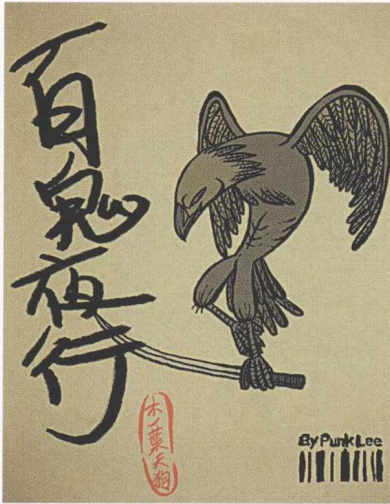 百鬼夜行
木ノ葉天狗
By Punk Lee